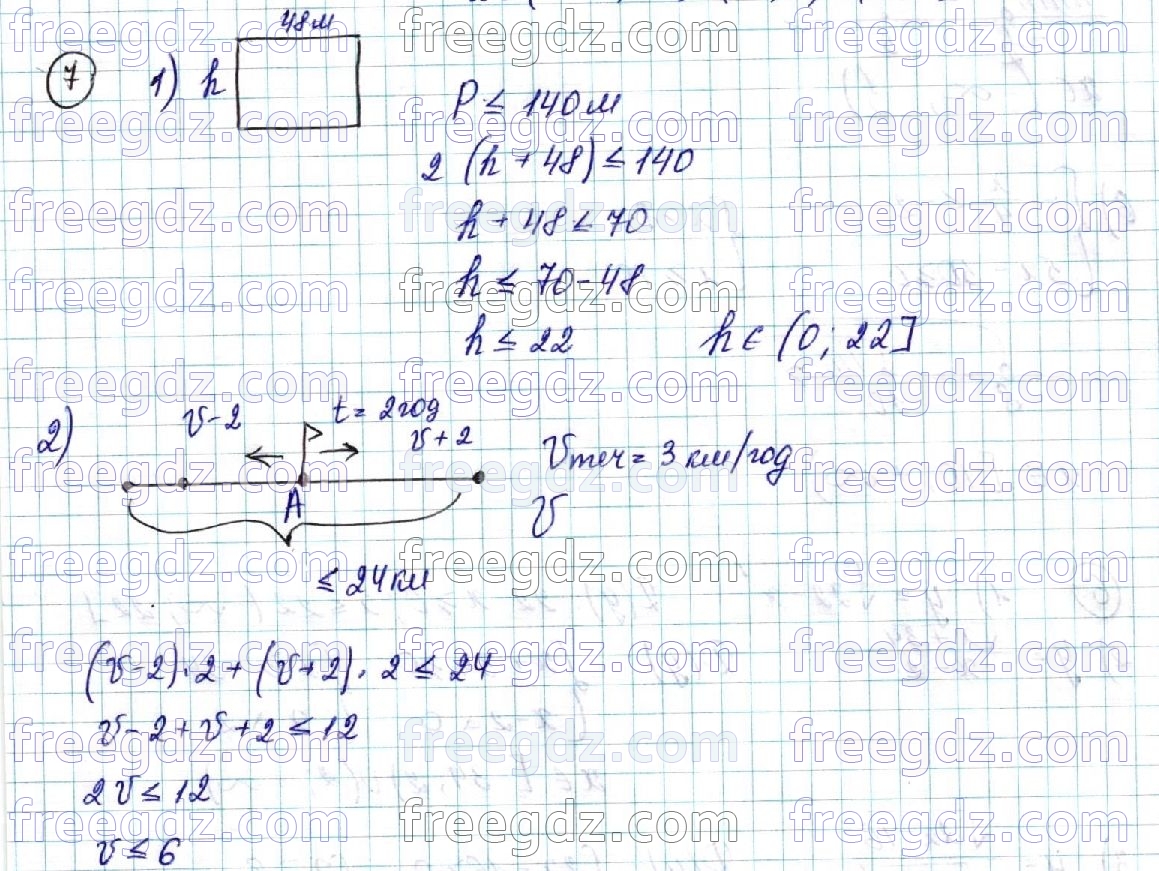 48м
7 1) h
P ≤ 140м
2 (h + 48) ≤ 140
h + 48 ≤ 70
h ≤ 70 - 48
h ≤ 22 h ∈ (0; 22]
2) v-2 t = 2год v+2
Vтеч = 3 км/год
A v
≤ 24км
(v-2)·2 + (v+2)·2 ≤ 24
v-2+v+2 ≤ 12
2v ≤ 12
v ≤ 6
freegdz.com freegdz.com freegdz.com
freegdz.com freegdz.com freegdz.com
freegdz.com freegdz.com freegdz.com
freegdz.com freegdz.com freegdz.com
freegdz.com freegdz.com freegdz.com
freegdz.com freegdz.com freegdz.com
freegdz.com freegdz.com freegdz.com
freegdz.com freegdz.com freegdz.com
freegdz.com freegdz.com freegdz.com
freegdz.com freegdz.com freegdz.com